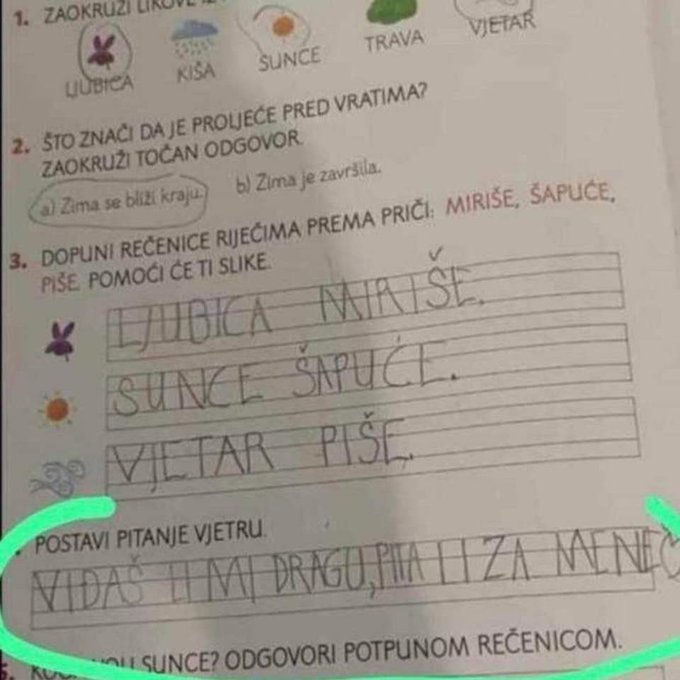 1. ZAOKRUŽI LIKOVE
LJUBICA KIŠA SUNCE TRAVA VJETAR
2. ŠTO ZNAČI DA JE PROLJEĆE PRED VRATIMA?
ZAOKRUŽI TOČAN ODGOVOR.
a) Zima se bliži kraju. b) Zima je završila.
3. DOPUNI REČENICE RIJEČIMA PREMA PRIČI: MIRIŠE, ŠAPUĆE,
PIŠE. POMOĆI ĆE TI SLIKE.
LJUBICA MIRIŠE.
SUNCE ŠAPUĆE.
VJETAR PIŠE.
POSTAVI PITANJE VJETRU.
VIĐAŠ LI MI DRAGU, PITA LI ZA MENE
SUNCE? ODGOVORI POTPUNOM REČENICOM.